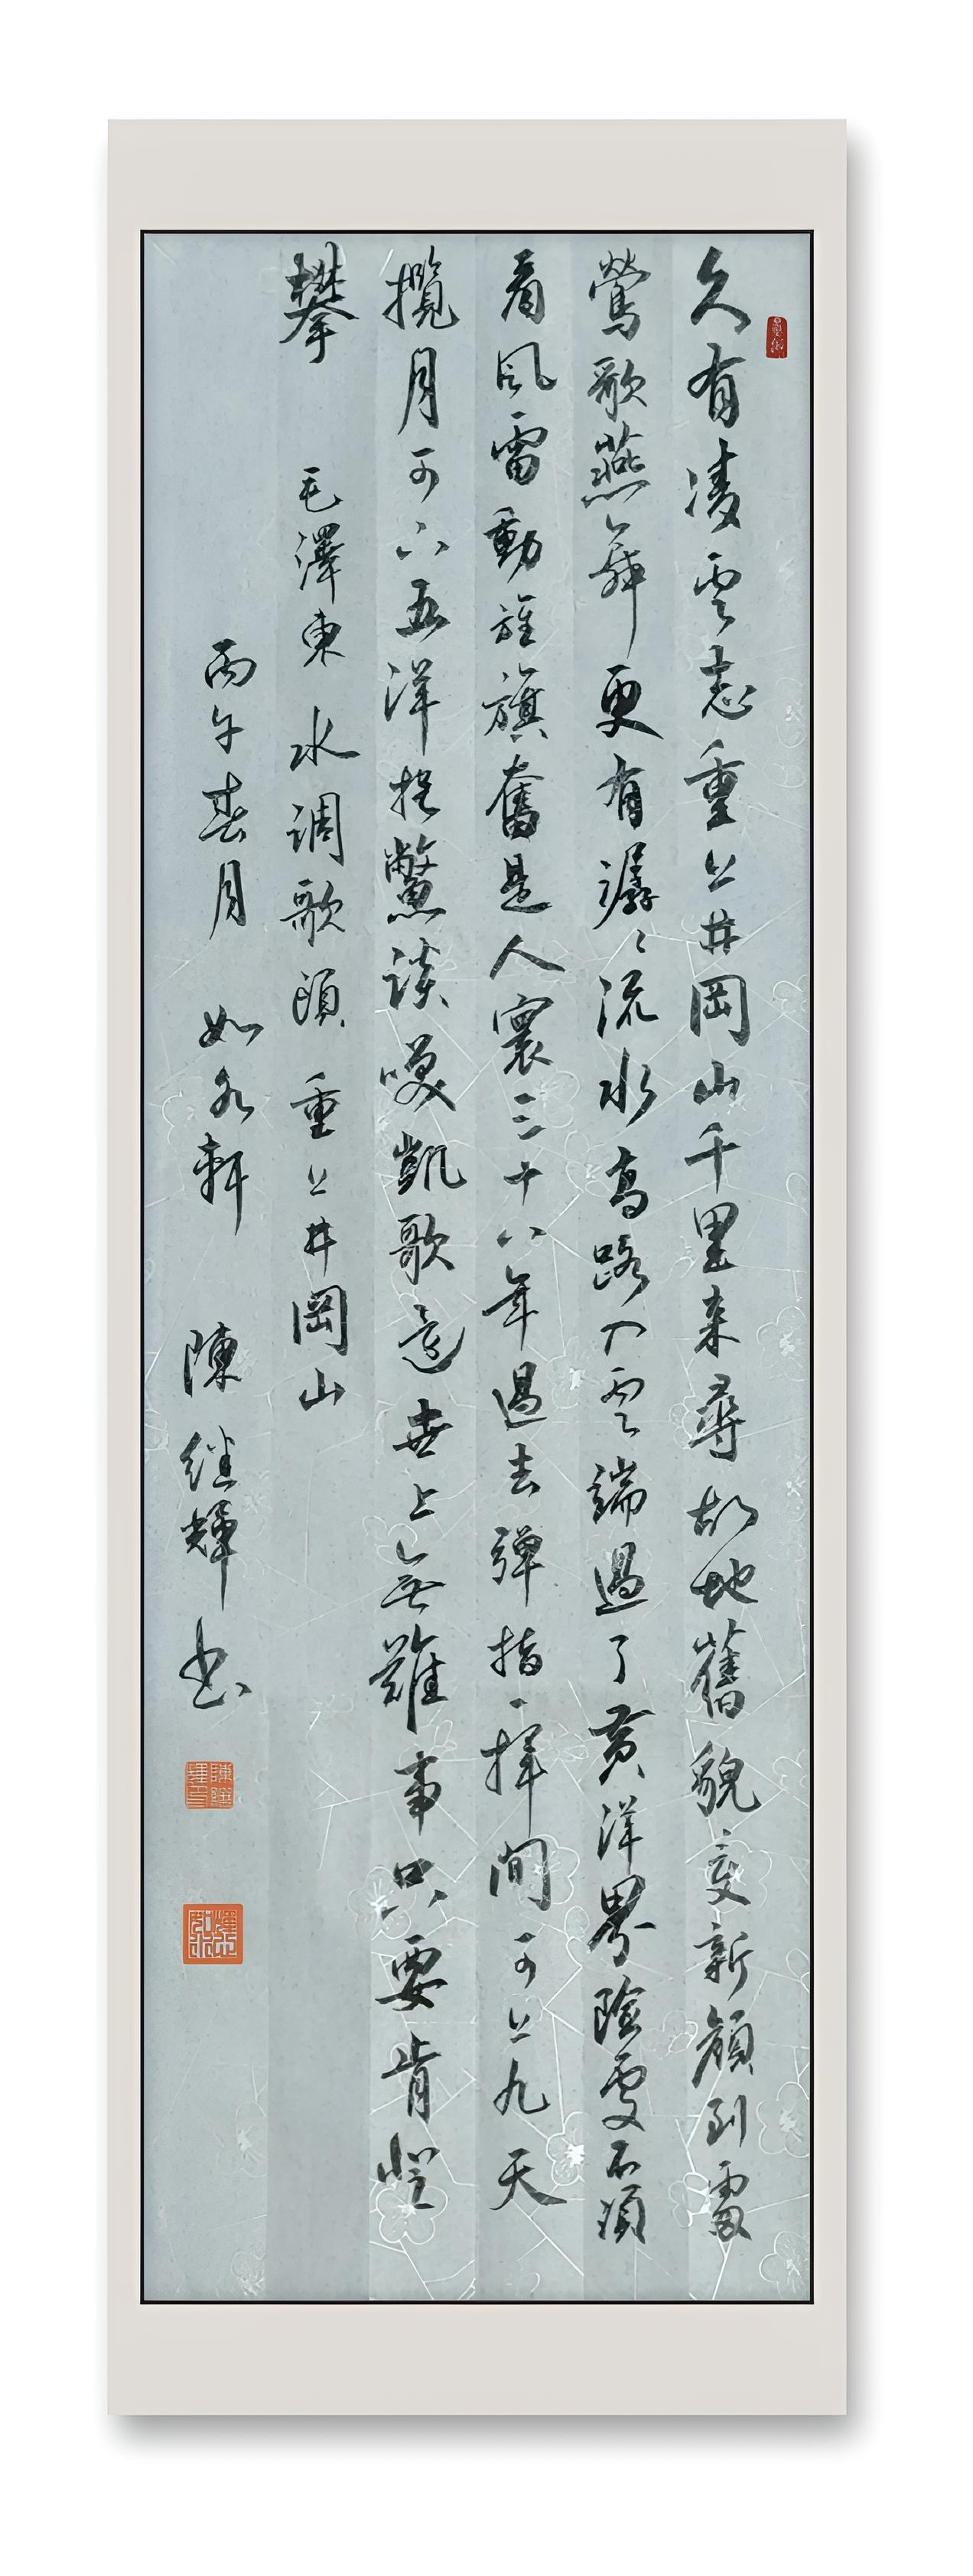 久有凌雲志重上井岡山千里来尋故地舊貌変新顔到處
鶯歌燕舞更有潺々流水高路入雲端過了黄洋界險處不須
看風雷動旌旗奮是人寰三十八年過去彈指一揮間可上九天
攬月可下五洋捉鱉談笑凱歌還世上無難事只要肯登
攀 毛澤東 水調歌頭 重上井岡山
丙午春月 如軒 陳继輝书